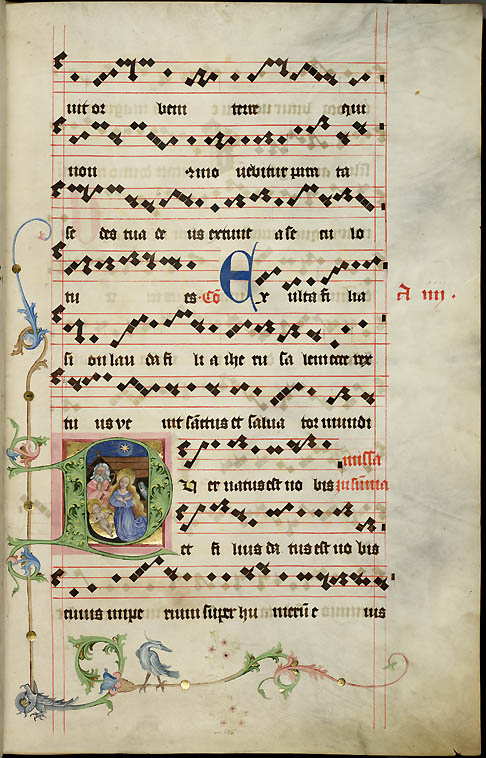 uit or bem terre qui
non ꝯmo uebitur
se des tua de us extunc a se cu lo
tu es. Cō Ex ulta fi lia
A iiij.
si on lau da fi li a ihe ru sa lem ecce rex
tu us ve nit sāctus et salua tor mundi
missa
P U er natus est no bis in sūma
et fi lius da tus est no bis
cuius impe rium super hu merū e ius